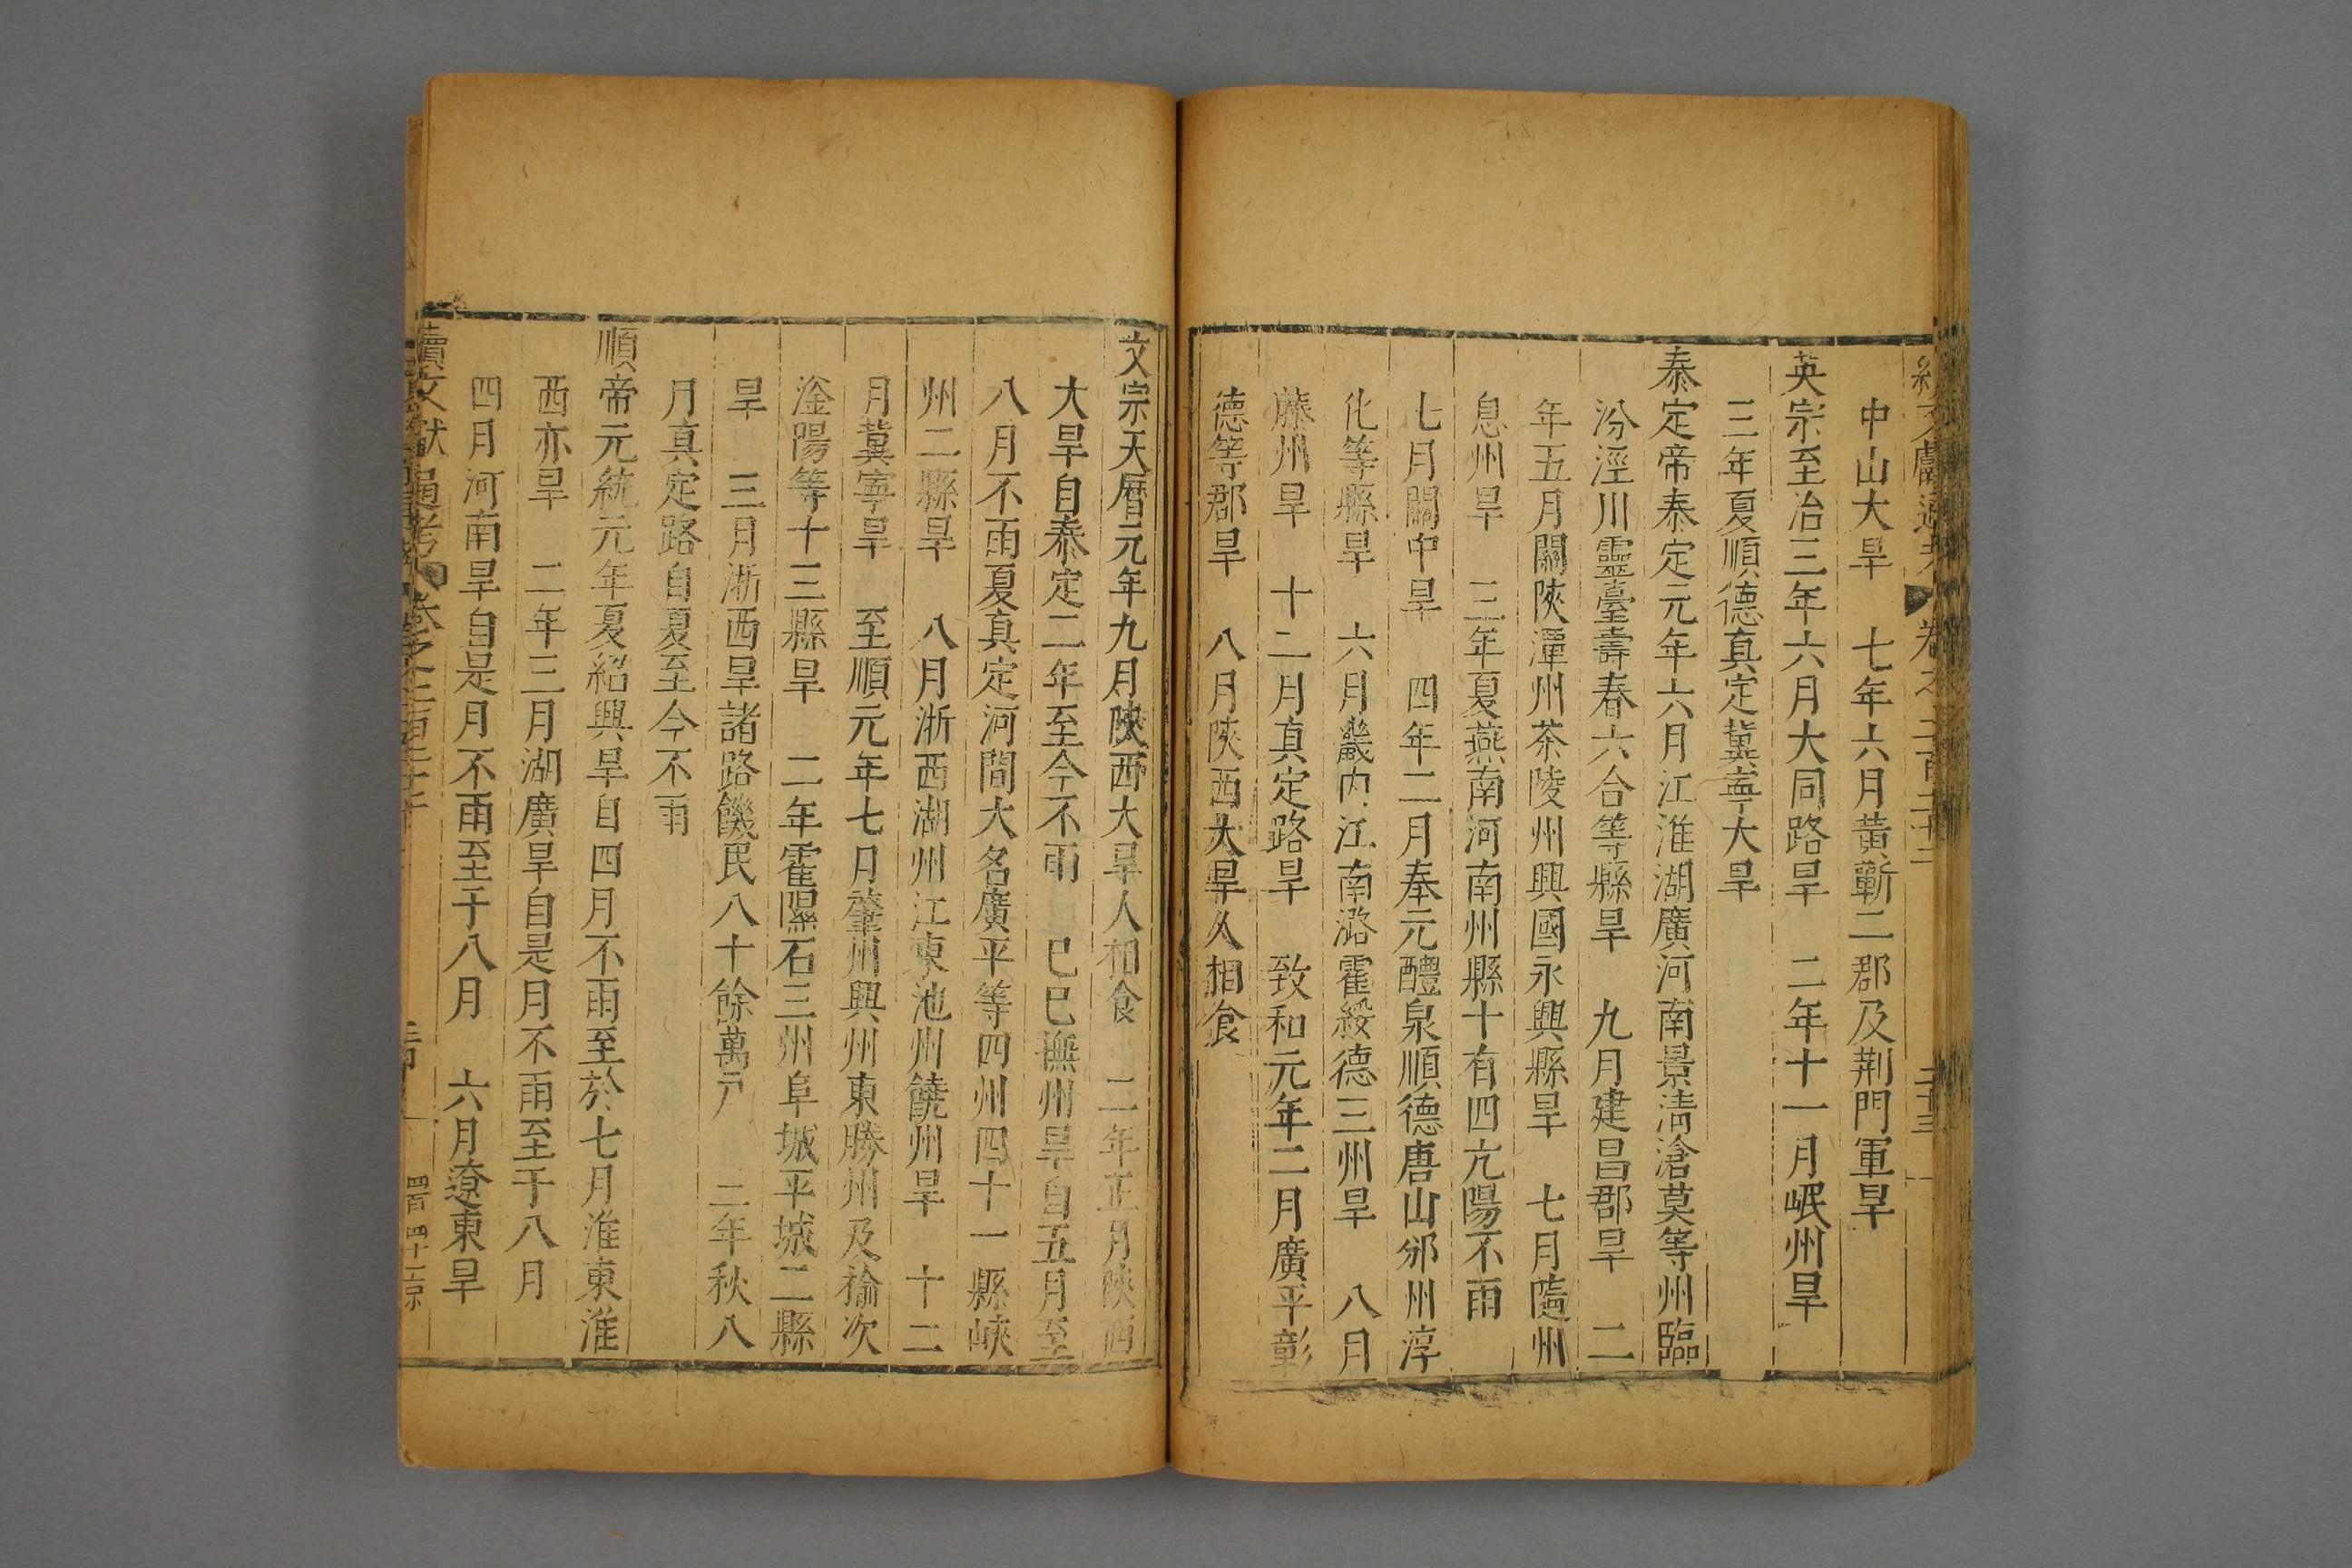 續文獻通考 卷之二百二十二 三十三
中山大旱 七年六月黄蘄二郡及荆門軍旱
英宗至治三年六月大同路旱 二年十一月岷州旱
三年夏順德真定冀寧大旱
泰定帝泰定元年六月江淮湖廣河南景清滄莫等州臨
汾涇川靈臺壽春六合等縣旱 九月建昌郡旱 二
年五月關陜潭州茶陵州興國永興縣旱 七月隨州
息州旱 三年夏燕南河南州縣十有四亢陽不雨
七月關中旱 四年二月奉元醴泉順德唐山邠州淳
化等縣旱 六月畿内江南潞霍綏德三州旱 八月
藤州旱 十二月真定路旱 致和元年二月廣平彰
德等郡旱 八月陜西大旱人相食
文宗天曆元年九月陜西大旱人相食 二年正月陜西
大旱自泰定二年至今不雨 巳巳㵲州旱自五月至
八月不雨夏真定河間大名廣平等四州四十一縣峽
州二縣旱 八月浙西湖州江東池州饒州旱 十二
月冀寧旱 至順元年七月肇州興州東勝州及榆次
滏陽等十三縣旱 二年霍隰石三州阜城平城二縣
旱 三月浙西旱諸路饑民八十餘萬戸 二年秋八
月真定路自夏至今不雨
順帝元統元年夏紹興旱自四月不雨至於七月淮東淮
西亦旱 二年三月湖廣旱自是月不雨至于八月
四月河南旱自是月不雨至于八月 六月遼東旱
續文獻通考 卷之二百二十二 三十四 四百四十二